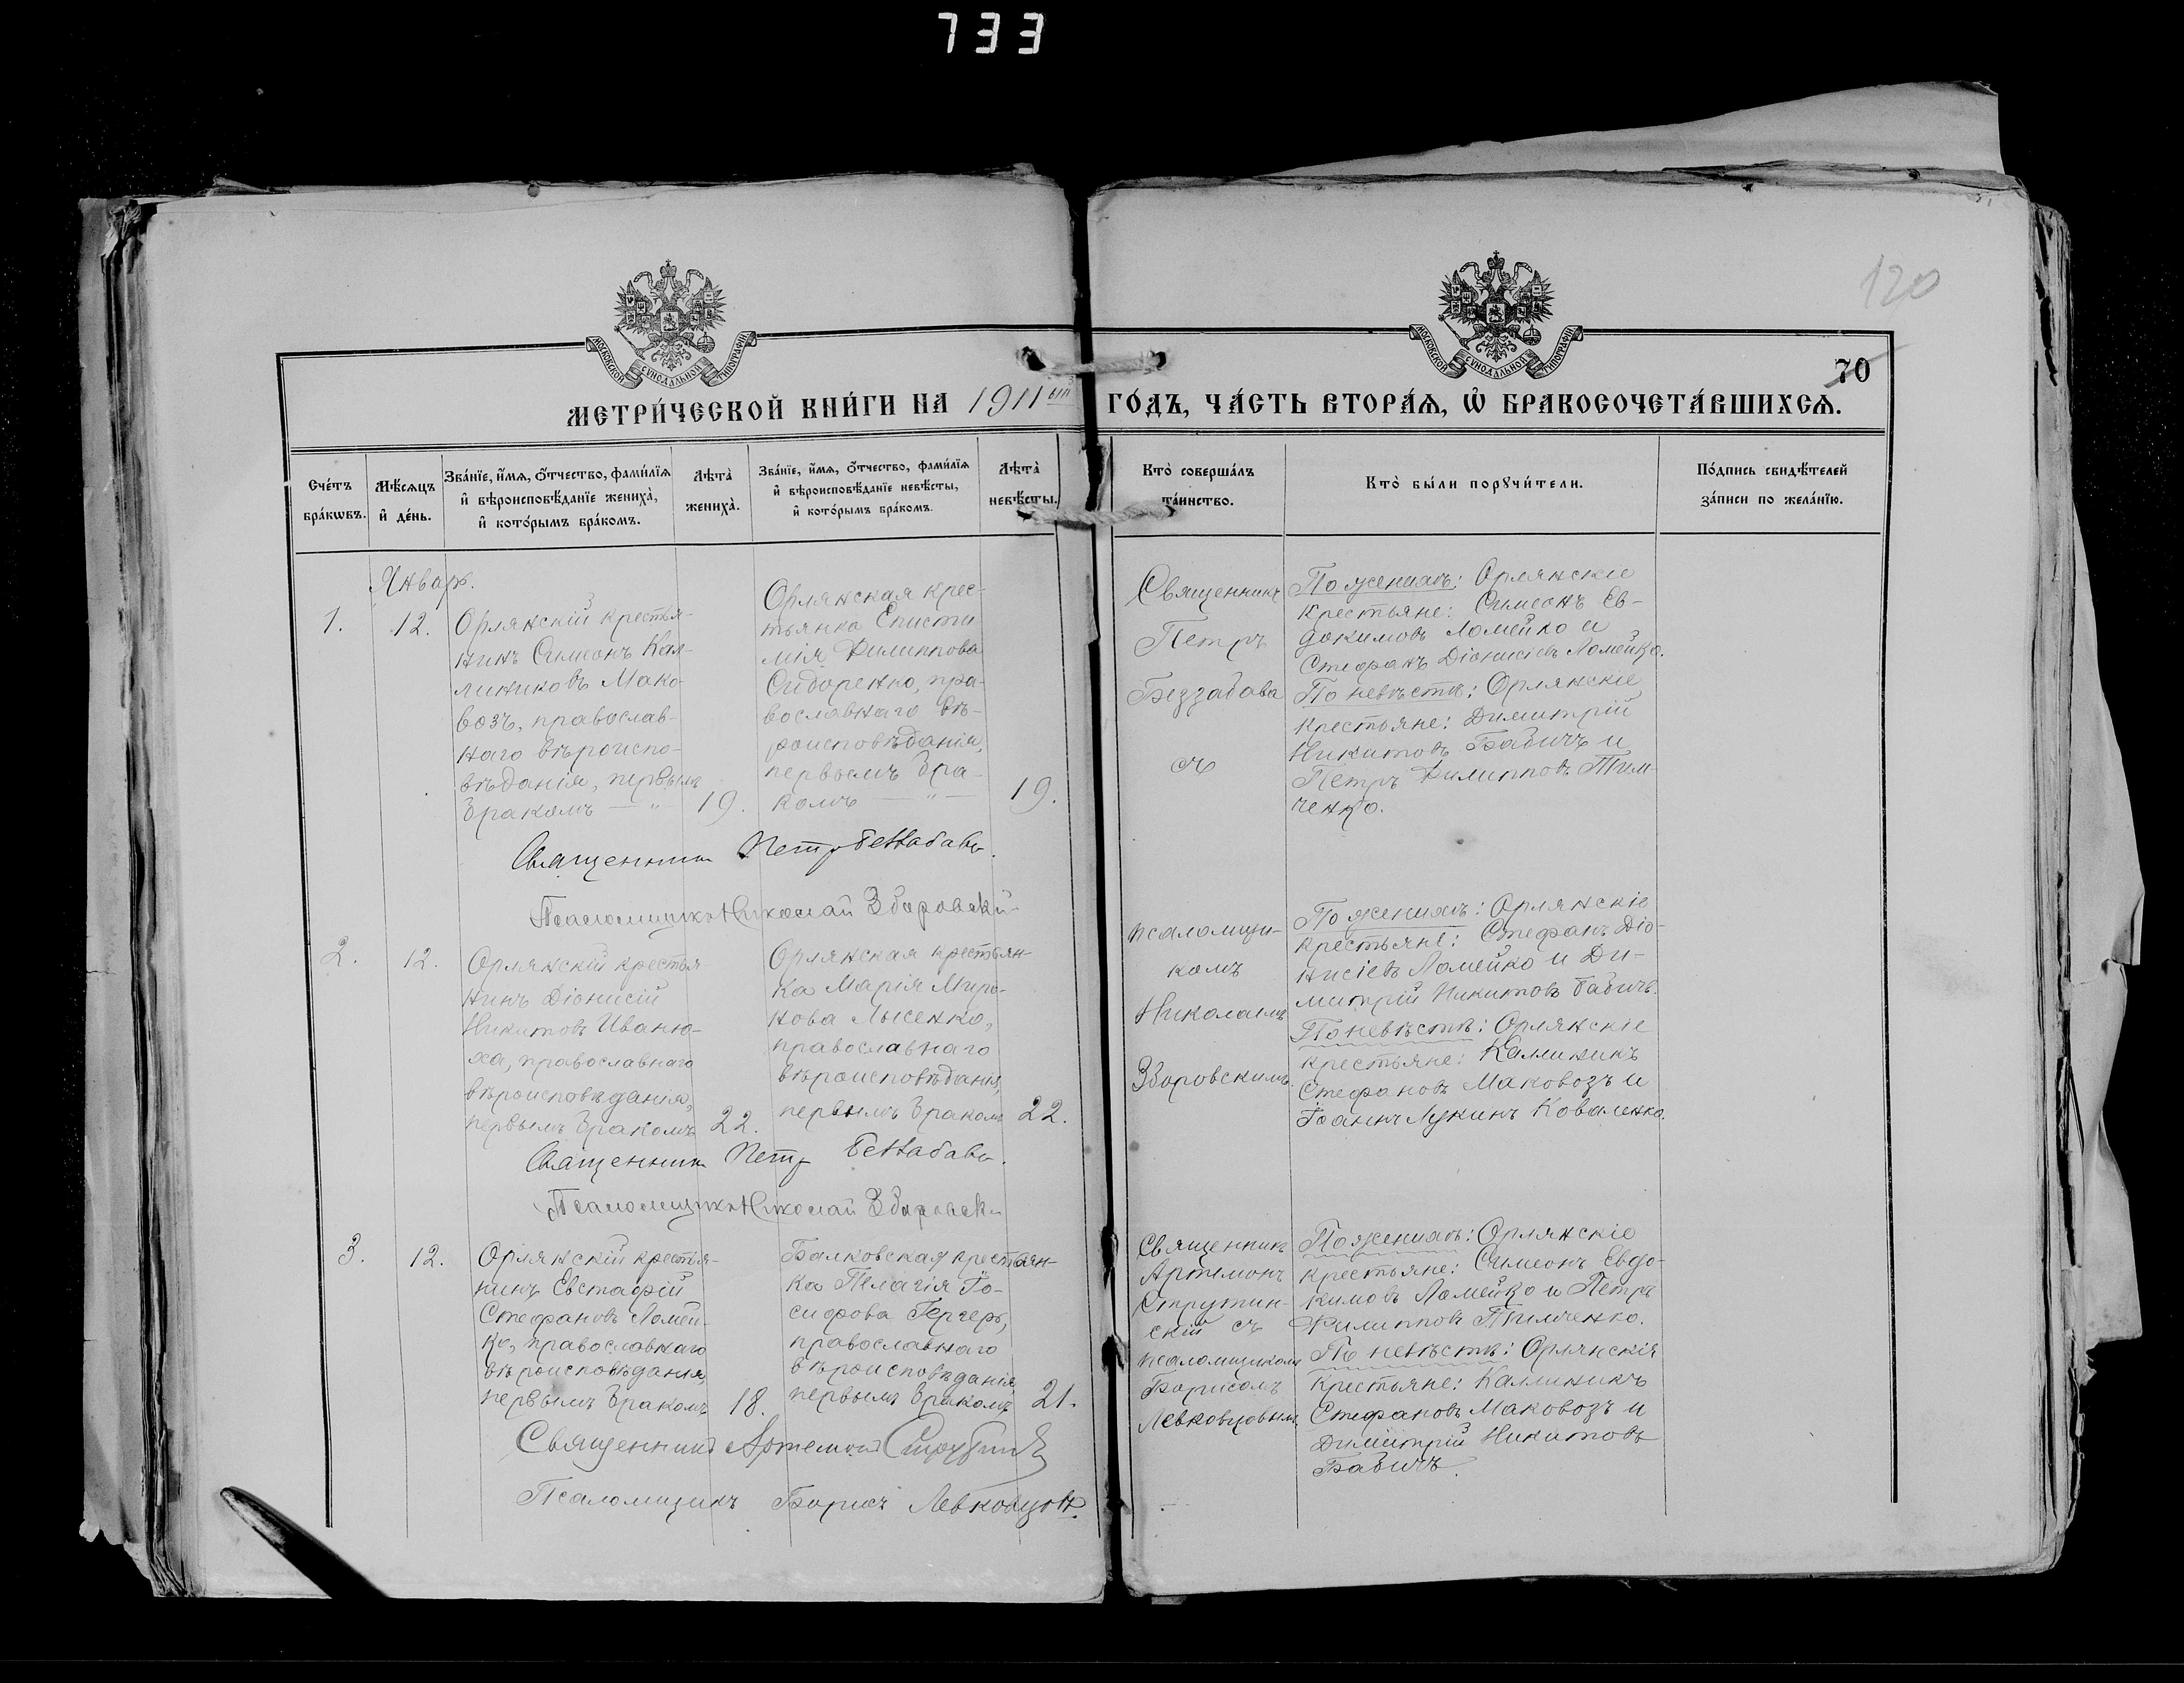 733
120
70
МОСКОВСКОЙ СѴНОДАЛЬНОЙ ТИПОГРАФІИ
МОСКОВСКОЙ СѴНОДАЛЬНОЙ ТИПОГРАФІИ
МЕТРИ́ЧЕСКОЙ КНИ́ГИ НА 1911ый ГО́ДЪ, ЧА́СТЬ ВТОРА́Ѧ, Ѡ҆ БРАКОСОЧЕТА́ВШИХСѦ.
Сче́тъ
бра́кѡвъ.
Мѣ́сѧцъ
и҆ де́нь.
Зва́нїе, и҆́мѧ, ѻ҆́тчество, фами́лїѧ
и҆ вѣроисповѣ́данїе жениха̀,
и҆ кото́рымъ бра́комъ.
Лѣта̀
жениха̀.
Зва́нїе, и҆́мѧ, ѻ҆́тчество, фами́лїѧ
и҆ вѣроисповѣ́данїе невѣ́сты,
и҆ кото́рымъ бра́комъ.
Лѣта̀
невѣ́сты.
Кто̀ соверша́лъ
та́инство.
Кто̀ бы́ли порꙋчи́тели.
По́дпись свидѣ́телей
за́писи по жела́нїю.
Январ.
1.
12.
Орлянскій крестья-
нинъ Симеонъ Кал-
линиковъ Мако-
возъ, православ-
наго вѣроиспо-
вѣданія, первымъ
бракомъ — " —
19.
Орлянская крес-
тьянка Еписти
мія Филиппова
Сидоренко, пра-
вославнаго вѣ-
роисповѣданія,
первымъ бра-
комъ — " —
19.
Священникъ
Петръ
Беззабава
съ
По женихѣ: Орлянскіе
крестьяне: Симеонъ Ев-
докимовъ Ломейко и
Стефанъ Діонисіевъ Ломейко.
По невѣстѣ: Орлянскіе
крестьяне: Димитрій
Никитовъ Бабичъ и
Петръ Филипповъ Тим-
ченко.
Священникъ Петръ Беззабава.
Псаломщикъ Николай Зборовскій
2.
12.
Орлянскій крестья
нинъ Діонисій
Никитовъ Иваню-
ха, православнаго
вѣроисповѣданія,
первымъ бракомъ
22.
Орлянская крестьян-
ка Марія Миро-
нова Лысенко,
православнаго
вѣроисповѣданія,
первымъ бракомъ
22.
псаломщи-
комъ
Николаемъ
Зборовскимъ.
По женихѣ: Орлянскіе
крестьяне: Стефанъ Діо-
нисіевъ Ломейко и Ди-
митрій Никитовъ Бабичъ.
По невѣстѣ: Орлянскіе
крестьяне: Каллиникъ
Стефановъ Маковозъ и
Іоаннъ Лукинъ Коваленко.
Священникъ Петръ Беззабава.
Псаломщикъ Николай Зборовскій
3.
12.
Орлянскій крестья-
нинъ Евстафій
Стефановъ Ломей-
ко, православнаго
вѣроисповѣданія,
первымъ бракомъ
18.
Балковская крестьян-
ка Пелагія Іо-
сифова Гергерь,
православнаго
вѣроисповѣданія
первымъ бракомъ
21.
Священникъ
Артемонъ
Струтин-
скій съ
псаломщикомъ
Борисомъ
Левковцовымъ.
По женихѣ: Орлянскіе
крестьяне: Симеонъ Евдо-
кимовъ Ломейко и Петръ
Филипповъ Тимченко.
По невѣстѣ: Орлянскіе
крестьяне: Каллиникъ
Стефановъ Маковозъ и
Димитрій Никитовъ
Бабичъ.
Священникъ Артемонъ
Псаломщикъ Борисъ Левковцовъ.